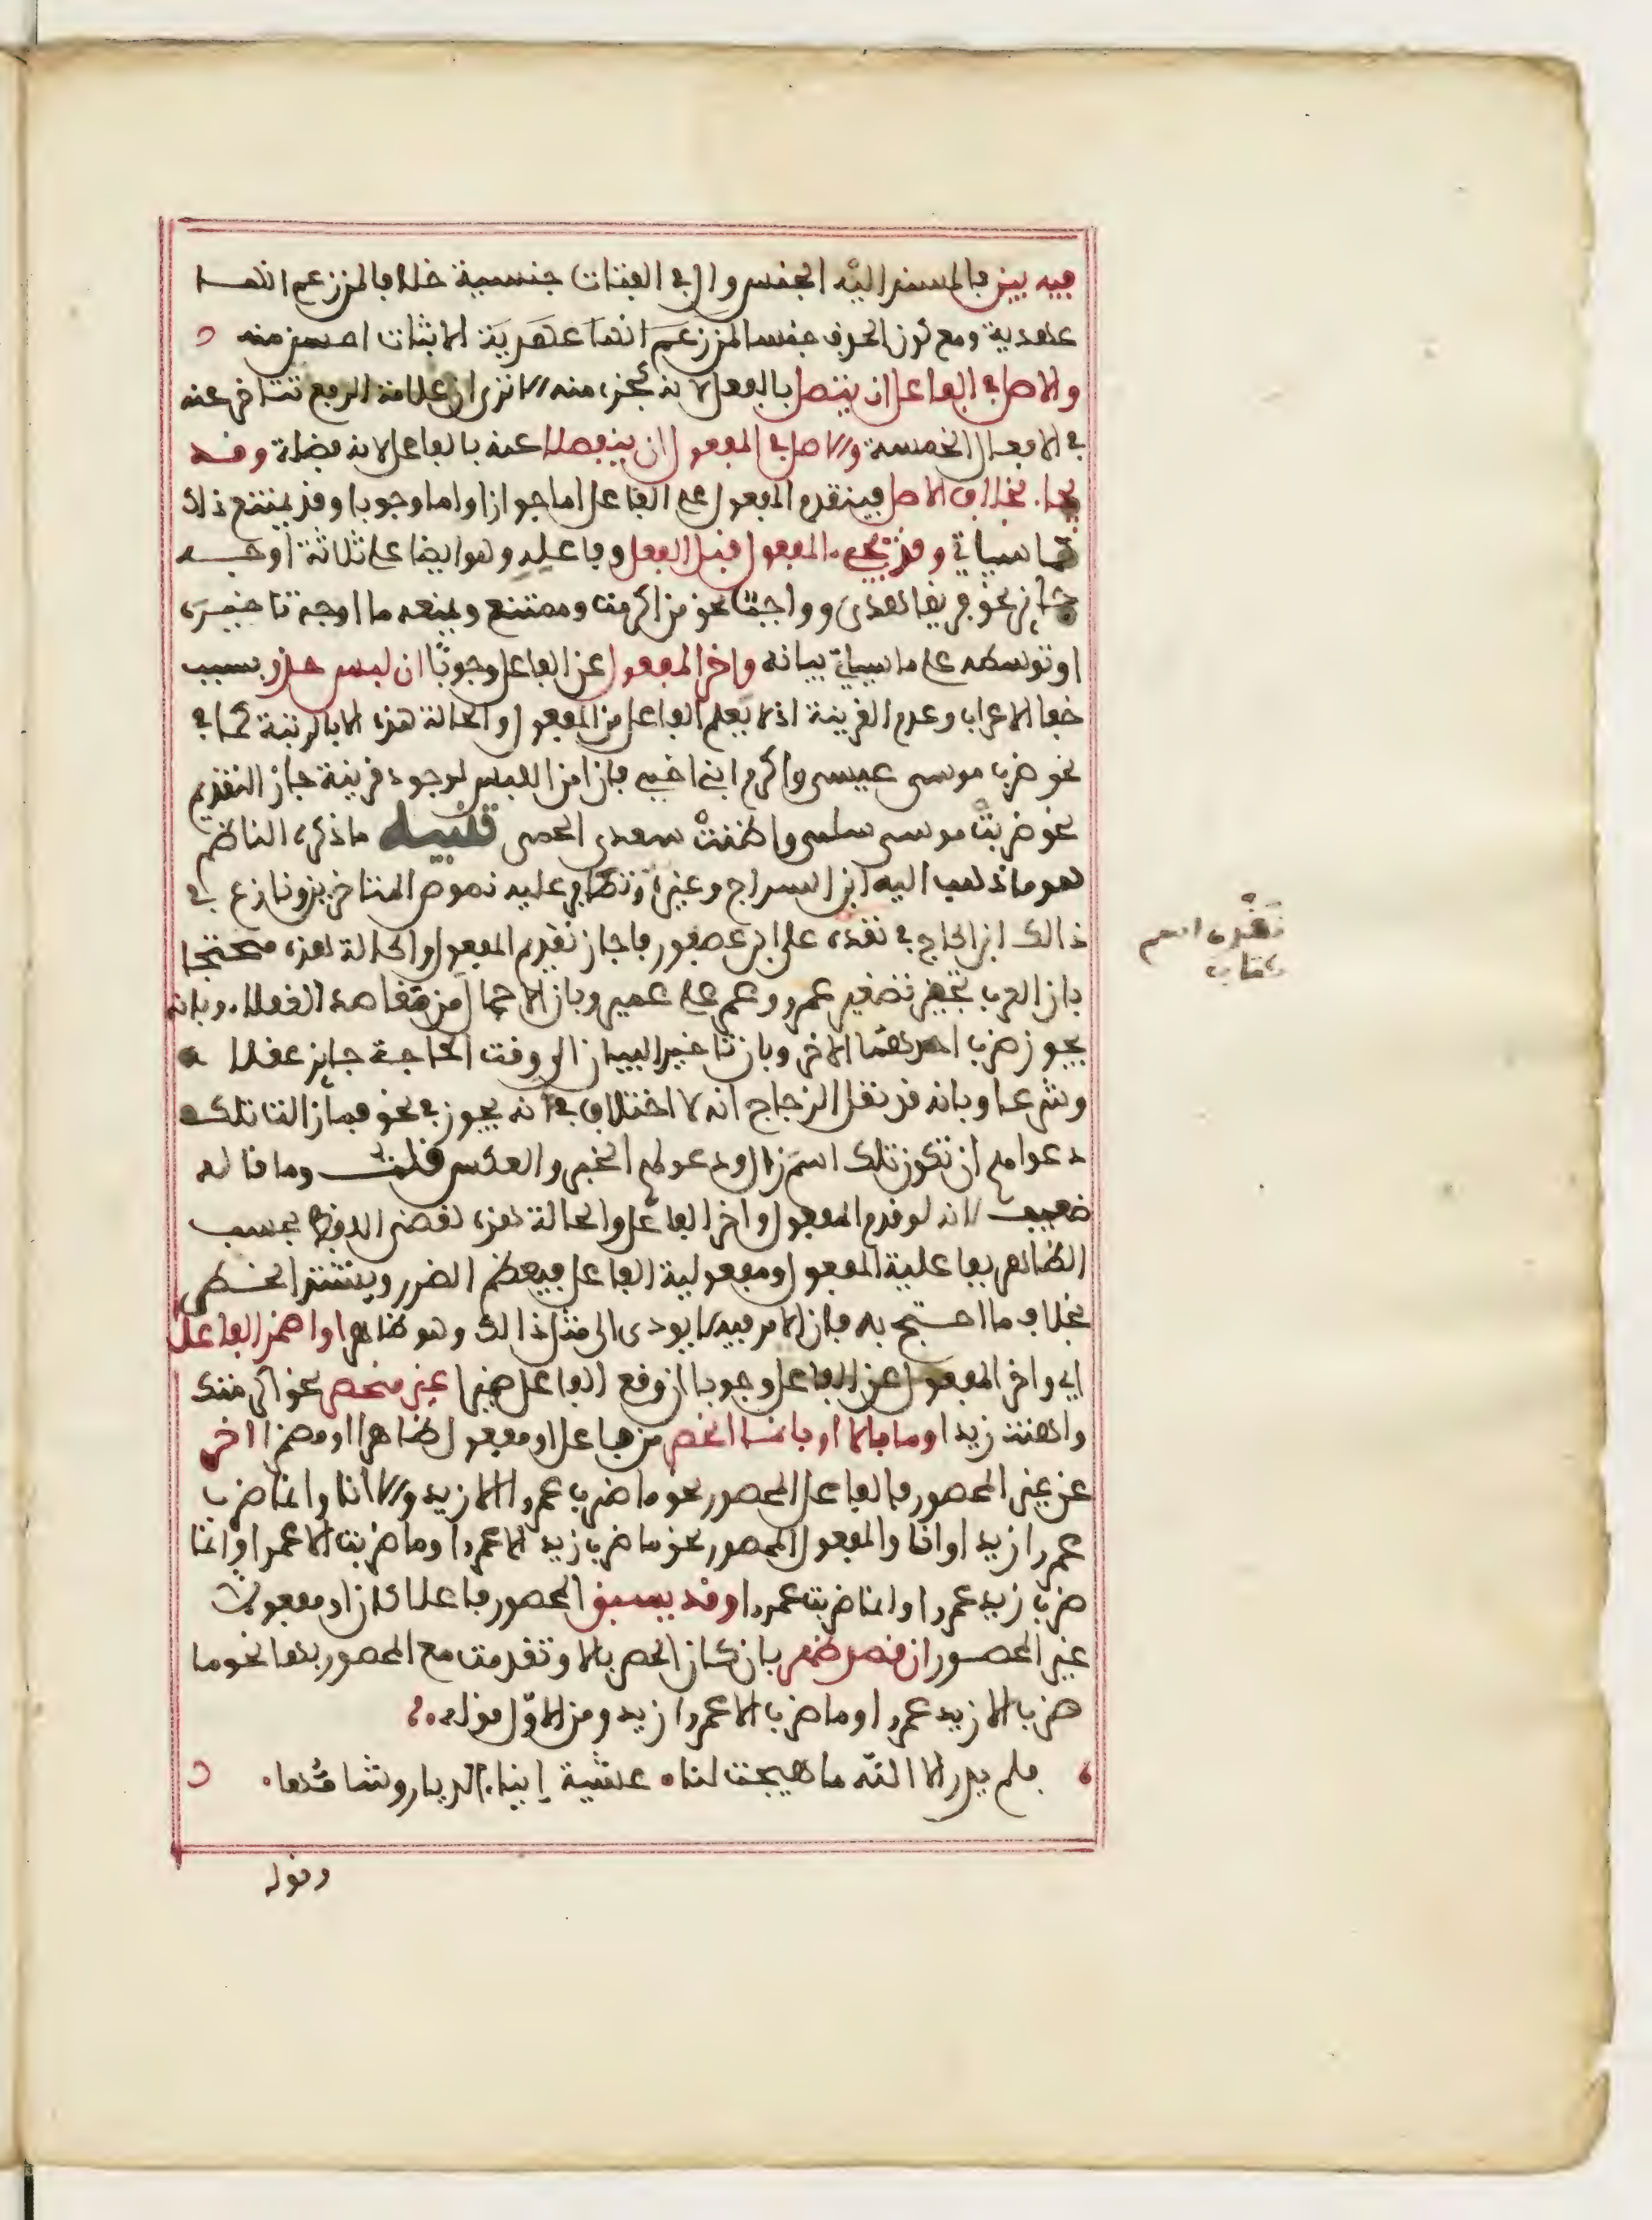 فيه بين فالمسند اليه الجنس وال في الفتات جنسية خلافا لمن زعم انها
عهدية ومع كون الحذف حسنا لمن زعم انها عهدية الاثبات احسن منه
والاصل في الفاعل ان يتصل بالفعل لانه كجزء منه الا ترى ان علامة الرفع تتاخر عنه
في الافعال الخمسة والاصل في المفعول ان ينفصلا عنه بالفاعل لانه فضلة وقد
يجاء بخلاف الاصل فيتقدم المفعول على الفاعل اما جوازا واما وجوبا وقد يمتنع ذلك
كما سياتي وقد يجي المفعول قبل الفعل وفاعله وهو ايضا على ثلاثة اوجه
جائز نحو فريقا هدى وواجب نحو من اكرمت وممتنع ويمنعه ما اوجب تاخيره
او توسطه على ما سياتي بيانه واخر المفعول عن الفاعل وجوبا ان لبس حذر بسبب
خفا الاعراب وعدم القرينة اذ لا يعلم الفاعل من المفعول والحالة هذه الا بالرتبة كما في
نحو ضرب موسى عيسى واكرم ابني اخي فان امن اللبس لوجود قرينة جاز التقديم
نحو ضربت موسى سلمى واضنت سعدى الحمى تنبيه ما ذكره الناظم
هو ما ذهب اليه ابن السراج وغيره وتظافر عليه نصوص المتاخرين ونازع في
ذالك ابن الحاج في نقده على ابن عصفور فاجاز تقديم المفعول والحالة هذه محتجا
بان العرب تجيز تصغير عمرو وعمر على عمير وبان الاجمال من مقاصد العقلاء وبانه
يجوز ضرب احدهما الاخر وبان تاخير البيان الى وقت الحاجة جايز عقلا
وشرعا وبانه قد نقل الزجاج انه لا اختلاف في انه يجوز في نحو فما زالت تلك
دعواهم ان تكون تلك اسم زال ودعواهم الخبر والعكس قلت وما قاله
ضعيف لانه لو قدم المفعول واخر الفاعل والحالة هذه لقضى اللفظ بحسب
الظاهر بفاعلية المفعول ومفعولية الفاعل فيعظم الضرر ويشتد الخطر
بخلاف ما احتج به فان الامر فيه لا يودي الى مثل ذالك وهو ظاهر او اضمر الفاعل
اي واخر المفعول عن الفاعل وجوبا ان وقع الفاعل ضميرا غير منحصر نحو اكرمتك
واهنت زيدا وما بالا او بانما انحصر من فاعل او مفعول ظاهرا او مضمرا اخر
عن غير المحصور فالفاعل المحصور نحو ما ضرب عمرا الا زيد والا انا وانما ضرب
عمرا زيد او انا والمفعول المحصور نحو ما ضرب زيد الا عمرا وما ضربت الا عمرا وانما
ضرب زيد عمرا وانما ضربت عمرا وقد يسبق المحصور فاعلا كان او مفعولا
غير المحصور ان قصد ظهر بان كان الحصر بالا وتقدمت مع المحصور بها نحو ما
ضرب الا زيد عمرا وما ضرب الا عمرا زيد ومن الاول قوله
فلم يدر الا الله ما هيجت لنا عشية انياء الديار وشامها
وقوله
نقده اسم
كتاب